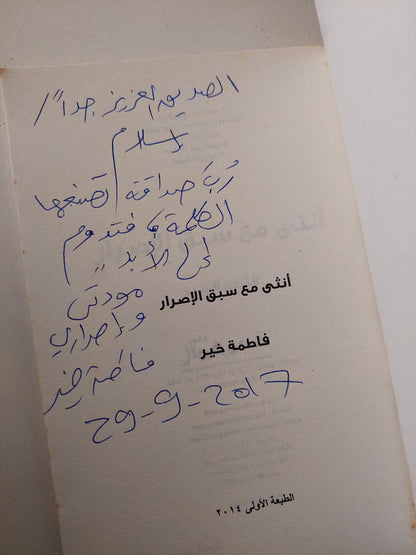 الصديق العزيز جداً /
إسلام
رُبَّ صداقة تصنعها
الكلمة فتدوم
إلى الأبد ,,
مودتى
وإصراري
فاطمة خير
29-9-2017
أنثى مع سبق الإصرار
فاطمة خير
الطبعة الأولى ٢٠١٤